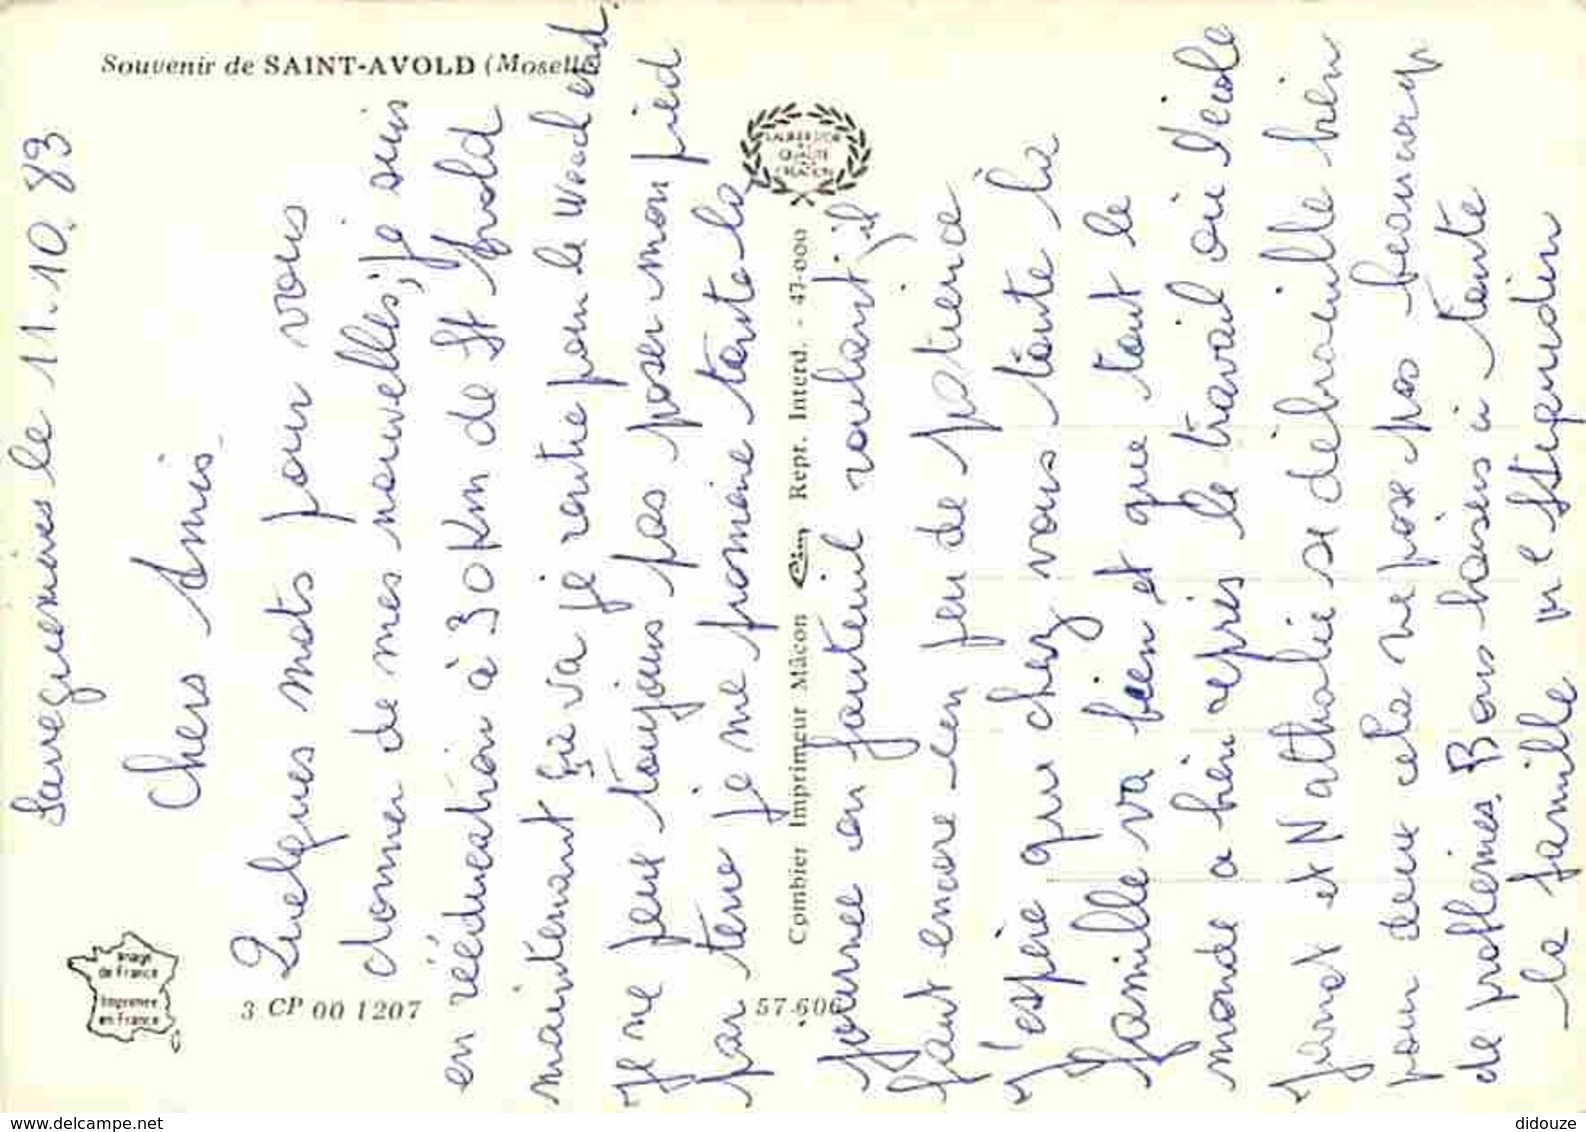 Souvenir de SAINT-AVOLD (Moselle)
Sarreguemines le 11.10.83
Chers Amis
Quelques mots pour vous
donner de mes nouvelles, je suis
en rééducation à 30 km de St Avold
maintenant ça va je rentre pour le week end
Je ne peux toujours pas poser mon pied
par terre je me promène toute la
journée en fauteuil roulant, il
faut encore un peu de patience
J'espère que chez vous toute la
famille va bien et que tout le
monde a bien repris le travail ou l'école
et Nathalie se débrouille bien
pour deux cela ne pose pas beaucoup
de problèmes. Bons baisers à toute
la famille
Image
de France
Imprimée
en France
3 CP 00 1207
57.606
Combier Imprimeur Mâcon Cim Rept. Interd. - 47-000
LAURIER D'OR
QUALITÉ
CRÉATION
www.delcampe.net
didouze